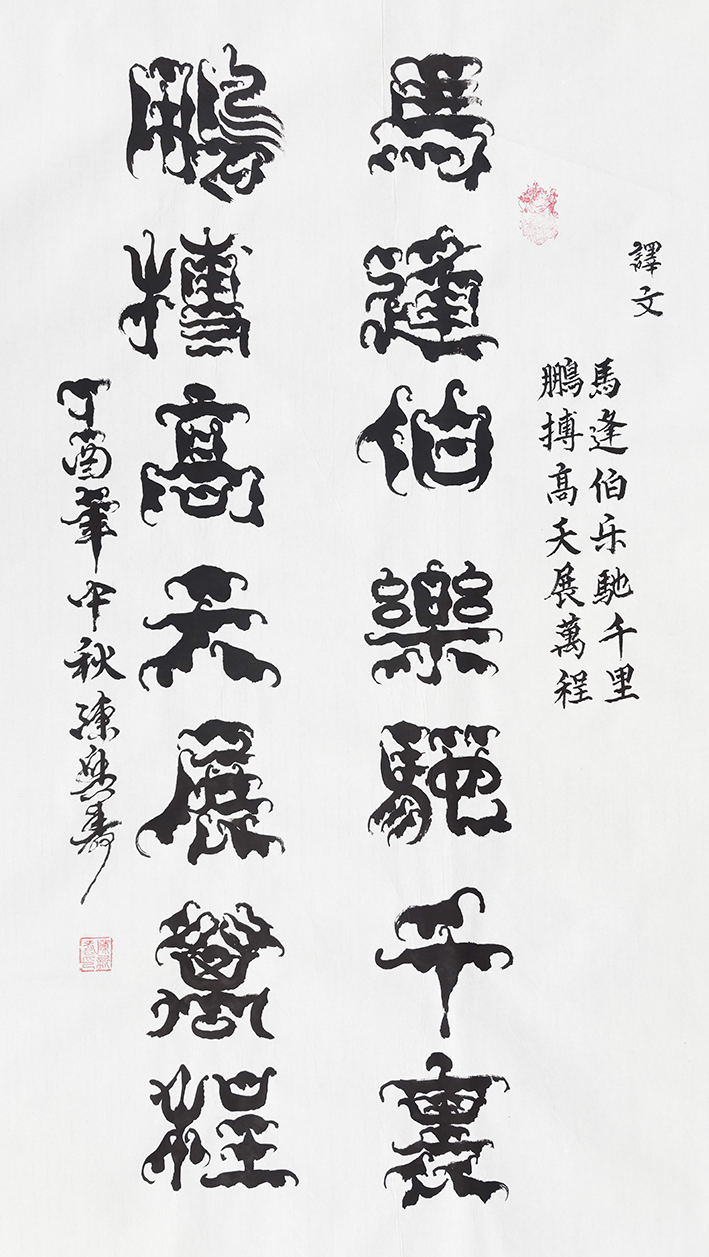 譯文
馬逢伯乐馳千里
鵬搏高天展萬程
馬逢伯樂馳千裏
鵬搏高天展萬程
丁酉年中秋陳興壽